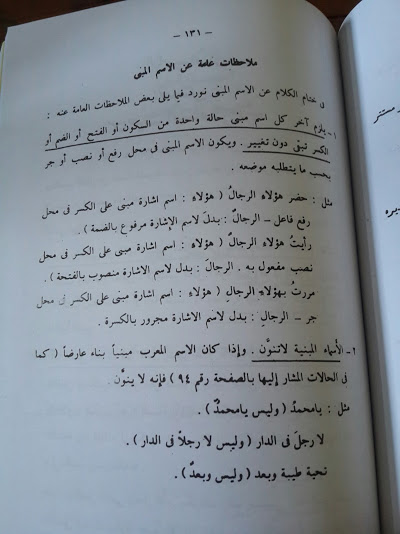 — ١٣١ —
ملاحظات عامة عن الاسم المبنى
فى ختام الكلام عن الاسم المبنى نورد فيما يلى بعض الملاحظات العامة عنه :
١ – يلزم آخر كل اسم مبنى حالة واحدة من السكون أو الفتح أو الضم أو
الكسر تبقى دون تغيير . ويكون الاسم المبنى فى محل رفع أو نصب أو جر
بحسب ما يتطلبه موضعه .
مثل : حضر هؤلاءِ الرجالُ ( هؤلاءِ : اسم اشارة مبنى على الكسر فى محل
رفع فاعل – الرجالُ : بدل لاسم الإشارة مرفوع بالضمة ) .
رأيتُ هؤلاءِ الرجالَ ( هؤلاءِ : اسم اشارة مبنى على الكسر فى محل
نصب مفعول به . الرجالَ : بدل لاسم الاشارة منصوب بالفتحة ) .
مررتُ بهؤلاءِ الرجالِ ( هؤلاءِ : اسم اشارة مبنى على الكسر فى محل
جر – الرجالِ : بدل لاسم الاشارة مجرور بالكسرة .
٢ – الأسماء المبنية لاتنوَّن . وإذا كان الاسم المعرب مبنياً بناء عارضاً ( كما
فى الحالات المشار إليها بالصفحة رقم ٩٤ ) فإنه لا ينوَّن .
مثل : يامحمدُ ( وليس يامحمدٌ ) .
لا رجلَ فى الدار ( وليس لا رجلاً فى الدار ) .
تحية طيبة وبعد ( وليس وبعدٌ ) .
مستتر